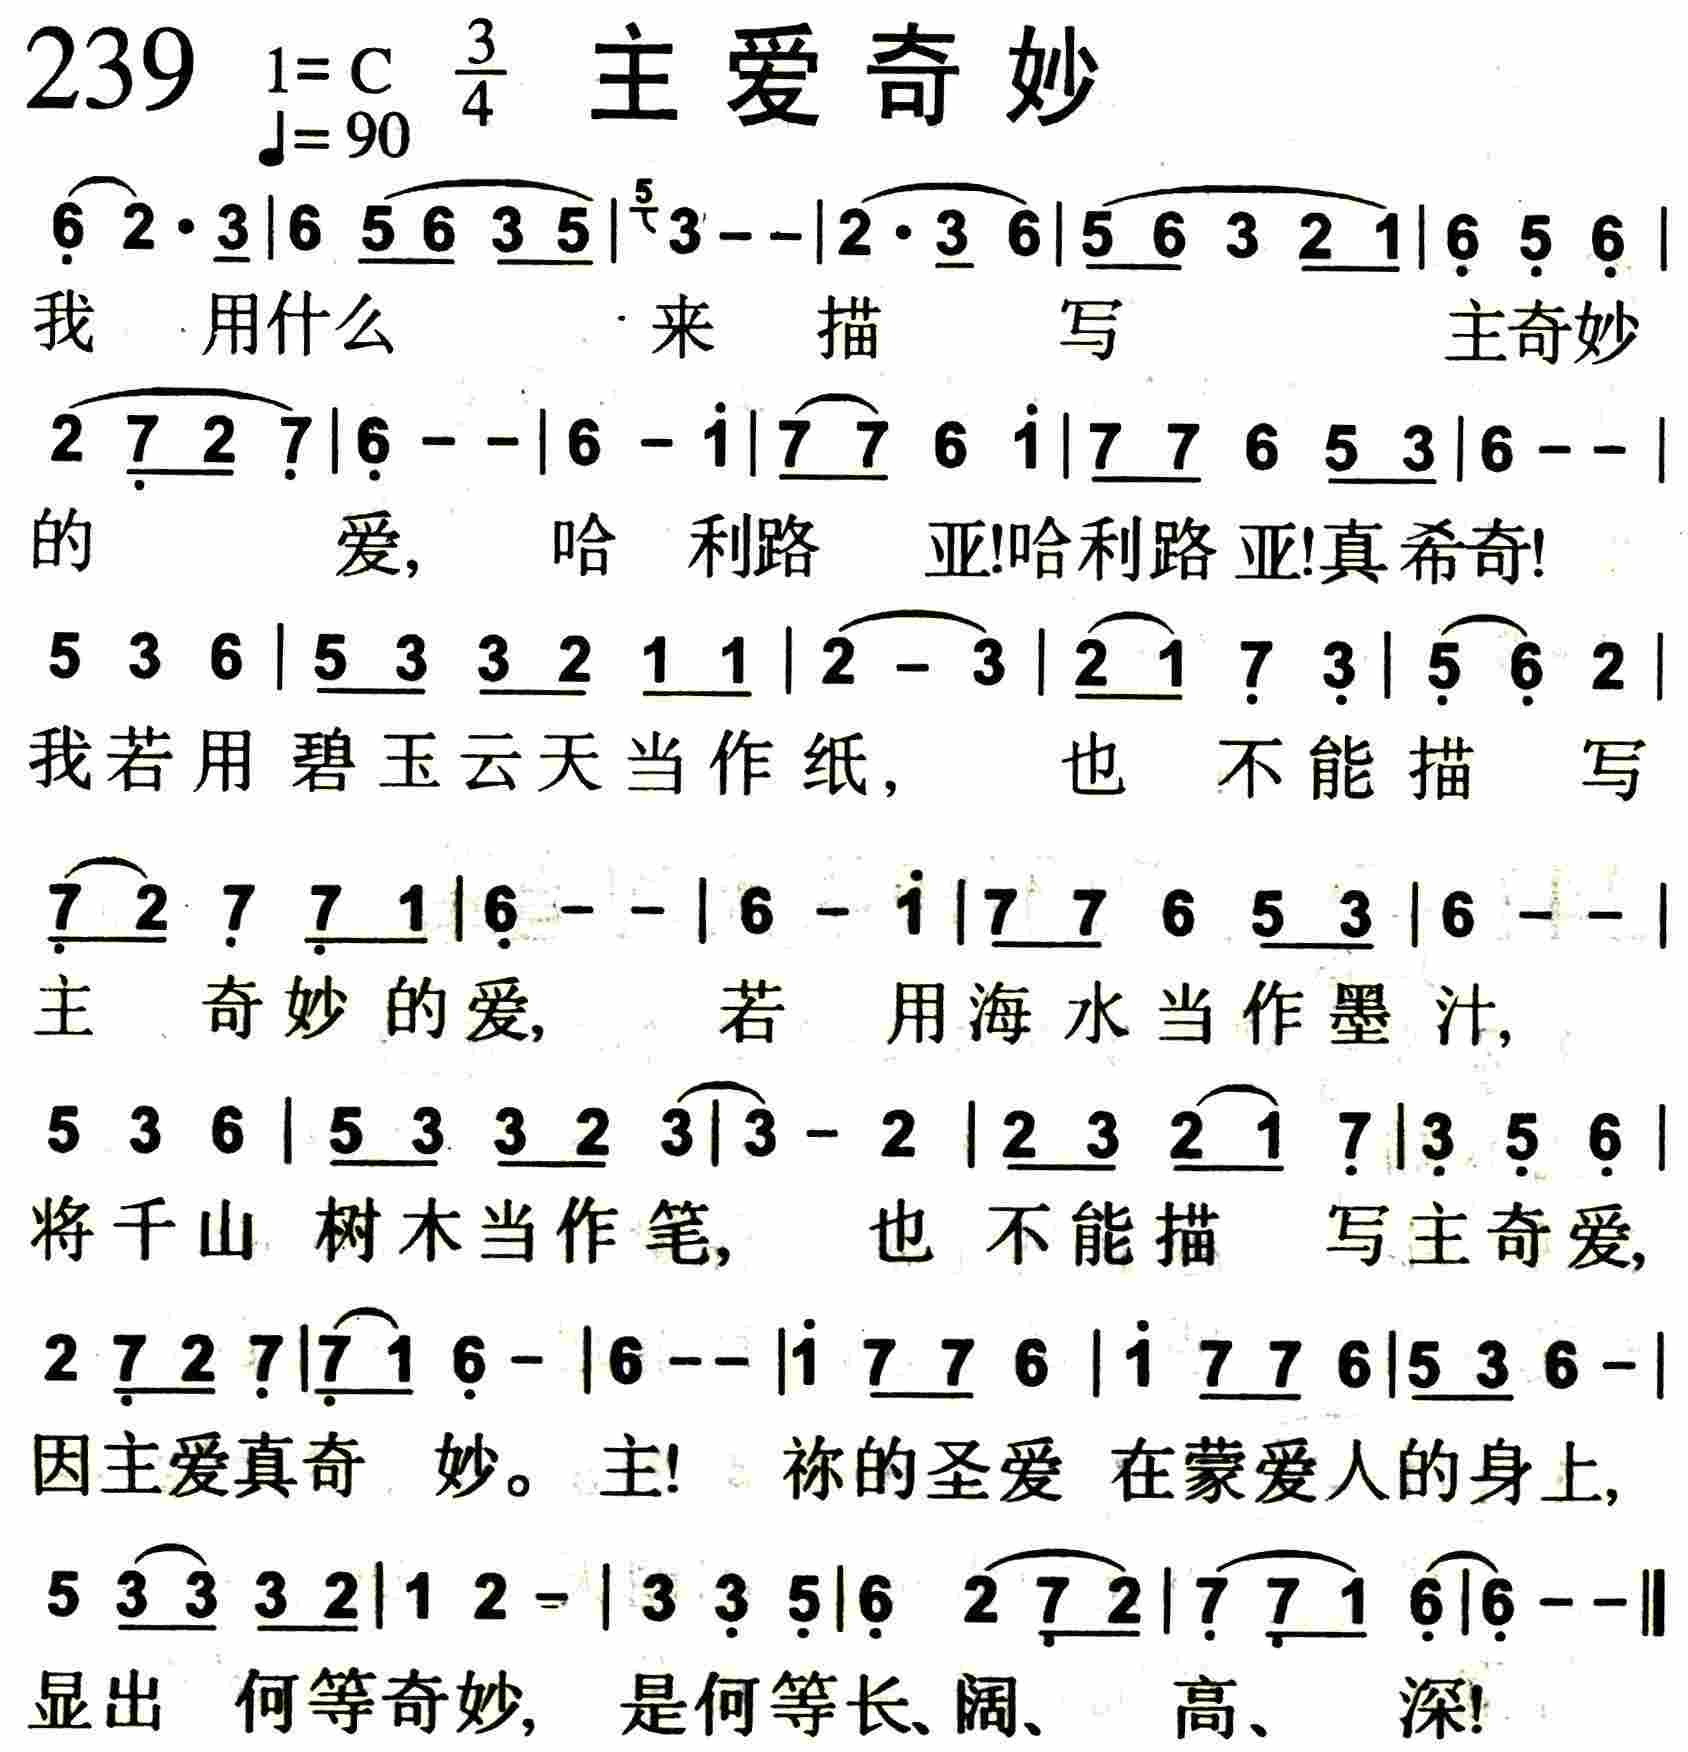 239 1=C 3/4 主爱奇妙
♩=90
6̣ 2 · 3 | 6 5 6 3 5 | 5 3 - - | 2 · 3 6 | 5 6 3 2 1 | 6̣ 5̣ 6̣ |
我 用什么 来 描 写 主奇妙
2 7̣ 2 7̣ | 6̣ - - | 6 - 1̇ | 7 7 6 1̇ | 7 7 6 5 3 | 6 - - |
的 爱, 哈 利路 亚!哈利路亚!真希奇!
5 3 6 | 5 3 3 2 1 1 | 2 - 3 | 2 1 7̣ 3̣ | 5̣ 6̣ 2 |
我若用 碧玉云天当作纸, 也 不能描 写
7̣ 2 7̣ 7̣ 1 | 6̣ - - | 6 - 1̇ | 7 7 6 5 3 | 6 - - |
主 奇妙的爱, 若 用海水当作墨汁,
5 3 6 | 5 3 3 2 3 | 3 - 2 | 2 3 2 1 7̣ | 3̣ 5̣ 6̣ |
将千山 树木当作笔, 也 不能描 写主奇爱,
2 7̣ 2 7̣ | 7̣ 1 6̣ - | 6 - - | 1̇ 7 7 6 | 1̇ 7 7 6 | 5 3 6 - |
因主爱真奇 妙。 主! 祢的圣爱 在蒙爱人的身上,
5 3 3 3 2 | 1 2 - | 3 3̣ 5̣ | 6̣ 2 7̣ 2 | 7̣ 7̣ 1 6̣ | 6̣ - - ‖
显出 何等奇妙, 是何等长、阔、 高、 深!